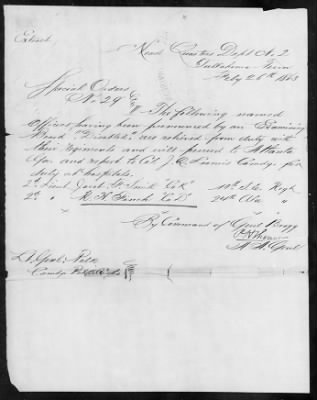 Extract
Head Quarters Dept No. 2
Tullahoma Tenn
Feby 26th 1863
Special Orders
No 29
The following named
Officers having been pronounced by an Examining
Board "Disabled" are relieved from duty with
their Regiments and will proceed to Atlanta
Ga and report to Col J. Comdg. for
duty at hospitals.
2d Lieut Smith Co "K" Regt
2d " Finch Co "D" 24th Ala "
By Command of Genl Bragg
A A Genl
Lt Genl Polk
Comdg